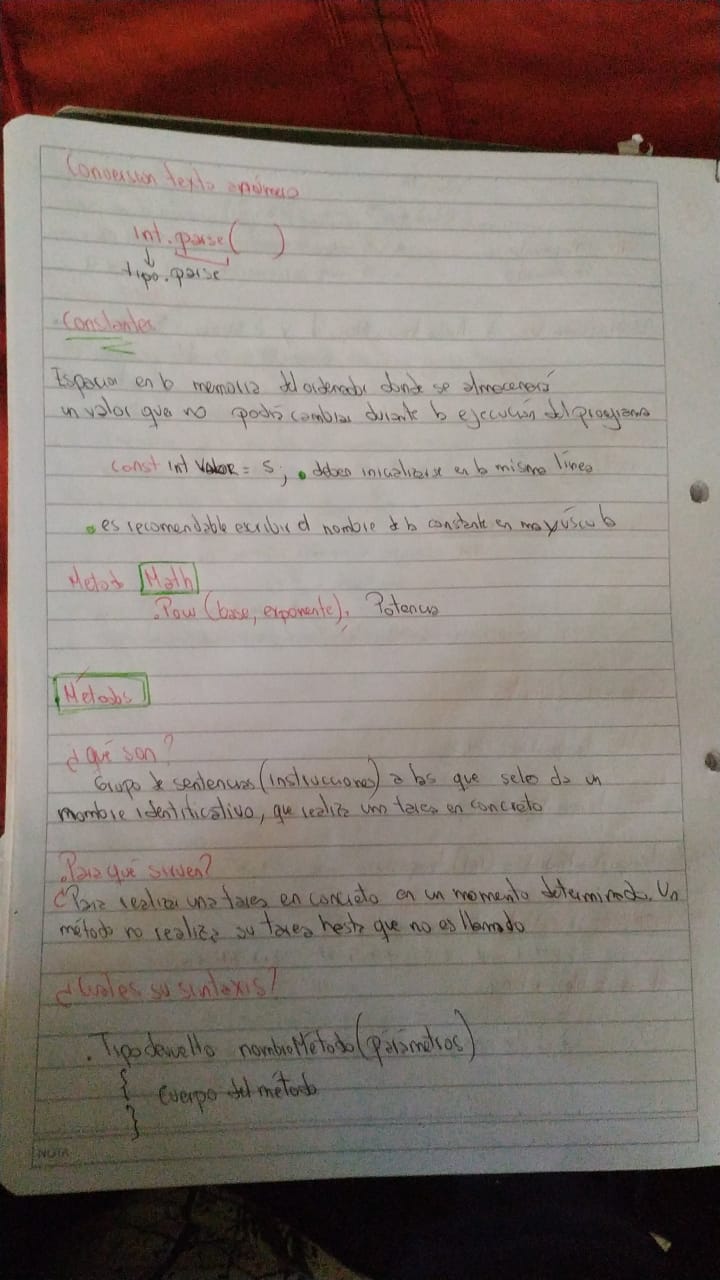 Conversion texto a número
Int.parse( )
tipo.parse
Constantes
Espacio en la memoria del ordenador donde se almacenará
un valor que no podrá cambiar durante la ejecución del programa
const int VALOR = 5; deben inicializarse en la misma línea
es recomendable escribir el nombre de la constante en mayúscula
Metod Math
.Pow (base, exponente); Potencia
Métodos
¿Qué son?
Grupo de sentencias (instrucciones) a las que se les da un
nombre identificativo, que realiza una tarea en concreto
¿Para qué sirven?
Para realizar una tarea en concreto en un momento determinado. Un
método no realiza su tarea hasta que no es llamado
¿Cual es su sintaxis?
. Tipo devuelto nombreMétodo (parámetros)
{ cuerpo del método
}
NOTA